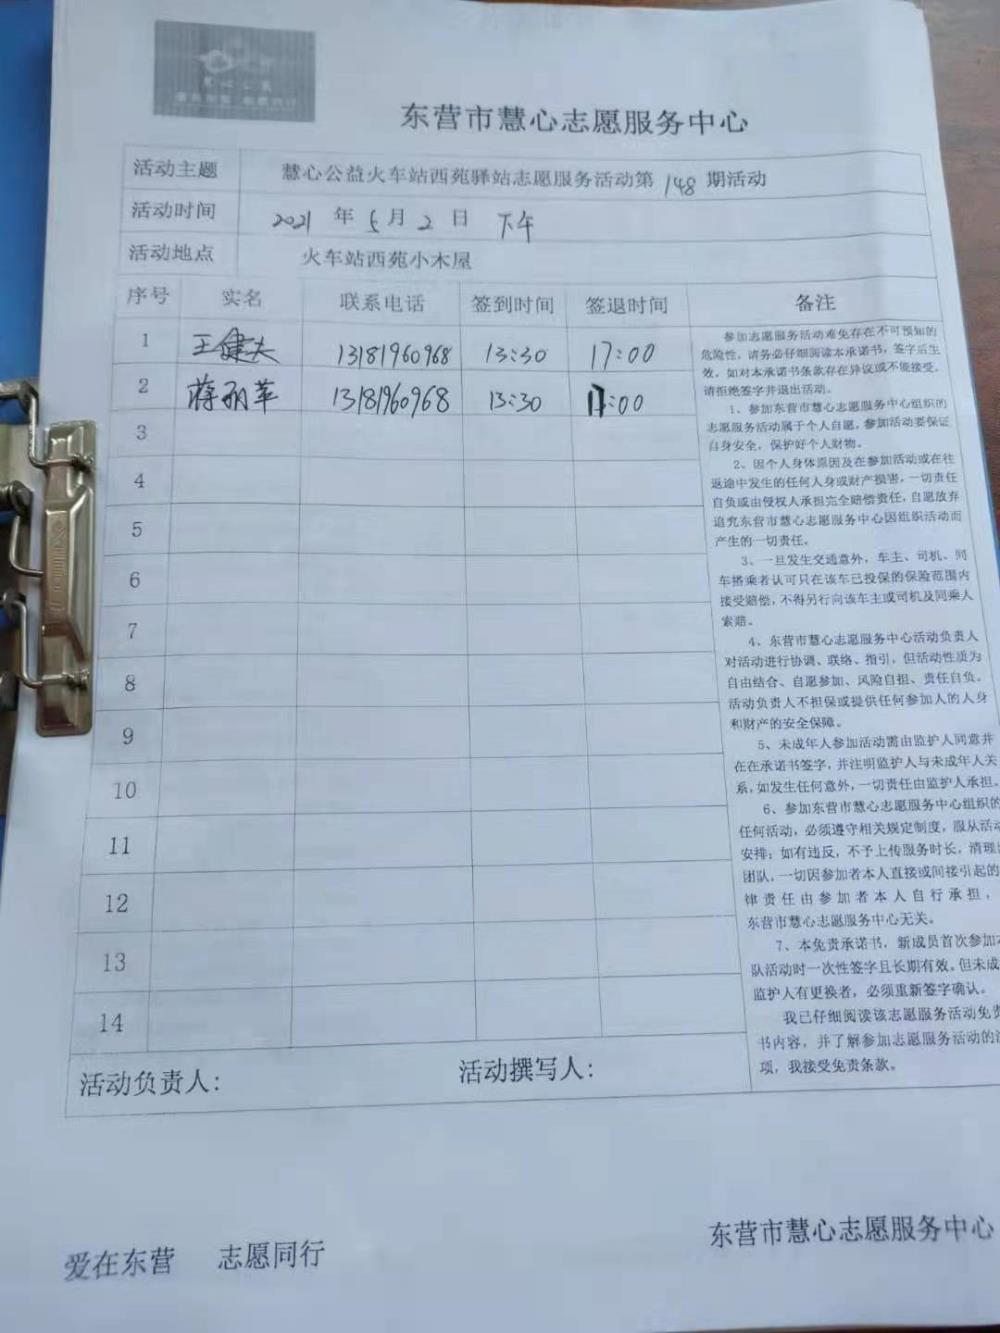 东营市慧心志愿服务中心
活动主题 慧心公益火车站西苑驿站志愿服务活动第 148 期活动
活动时间 2021 年 5 月 2 日 下午
活动地点 火车站西苑小木屋
序号 实名 联系电话 签到时间 签退时间 备注
1 王健夫 13181960968 13:30 17:00
2 蒋丽苹 13181960968 13:30 17:00
3
4
5
6
7
8
9
10
11
12
13
14
参加志愿服务活动难免存在不可预知的
危险性，请务必仔细阅读本承诺书，签字后生
效。如对本承诺书条款存在异议或不能接受，
请拒绝签字并退出活动。
1、参加东营市慧心志愿服务中心组织的
志愿服务活动属于个人自愿，参加活动要保证
自身安全，保护好个人财物。
2、因个人身体原因及在参加活动或在往
返途中发生的任何人身或财产损害，一切责任
自负或由侵权人承担完全赔偿责任，自愿放弃
追究东营市慧心志愿服务中心因组织活动而
产生的一切责任。
3、一旦发生交通意外，车主、司机、同
车搭乘者认可只在该车已投保的保险范围内
接受赔偿，不得另行向该车主或司机及同乘人
索赔。
4、东营市慧心志愿服务中心活动负责人
对活动进行协调、联络、指引，但活动性质为
自由结合、自愿参加、风险自担、责任自负。
活动负责人不担保或提供任何参加人的人身
和财产的安全保障。
5、未成年人参加活动需由监护人同意并
在在承诺书签字，并注明监护人与未成年人关
系，如发生任何意外，一切责任由监护人承担。
6、参加东营市慧心志愿服务中心组织的
任何活动，必须遵守相关规定制度，服从活动
安排；如有违反，不予上传服务时长，清理
团队，一切因参加者本人直接或间接引起的
律责任由参加者本人自行承担，
东营市慧心志愿服务中心无关。
7、本免责承诺书，新成员首次参加
队活动时一次性签字且长期有效。但未成
监护人有更换者，必须重新签字确认。
我已仔细阅读该志愿服务活动免责
书内容，并了解参加志愿服务活动的
项，我接受免责条款。
活动负责人： 活动撰写人：
东营市慧心志愿服务中心
爱在东营 志愿同行